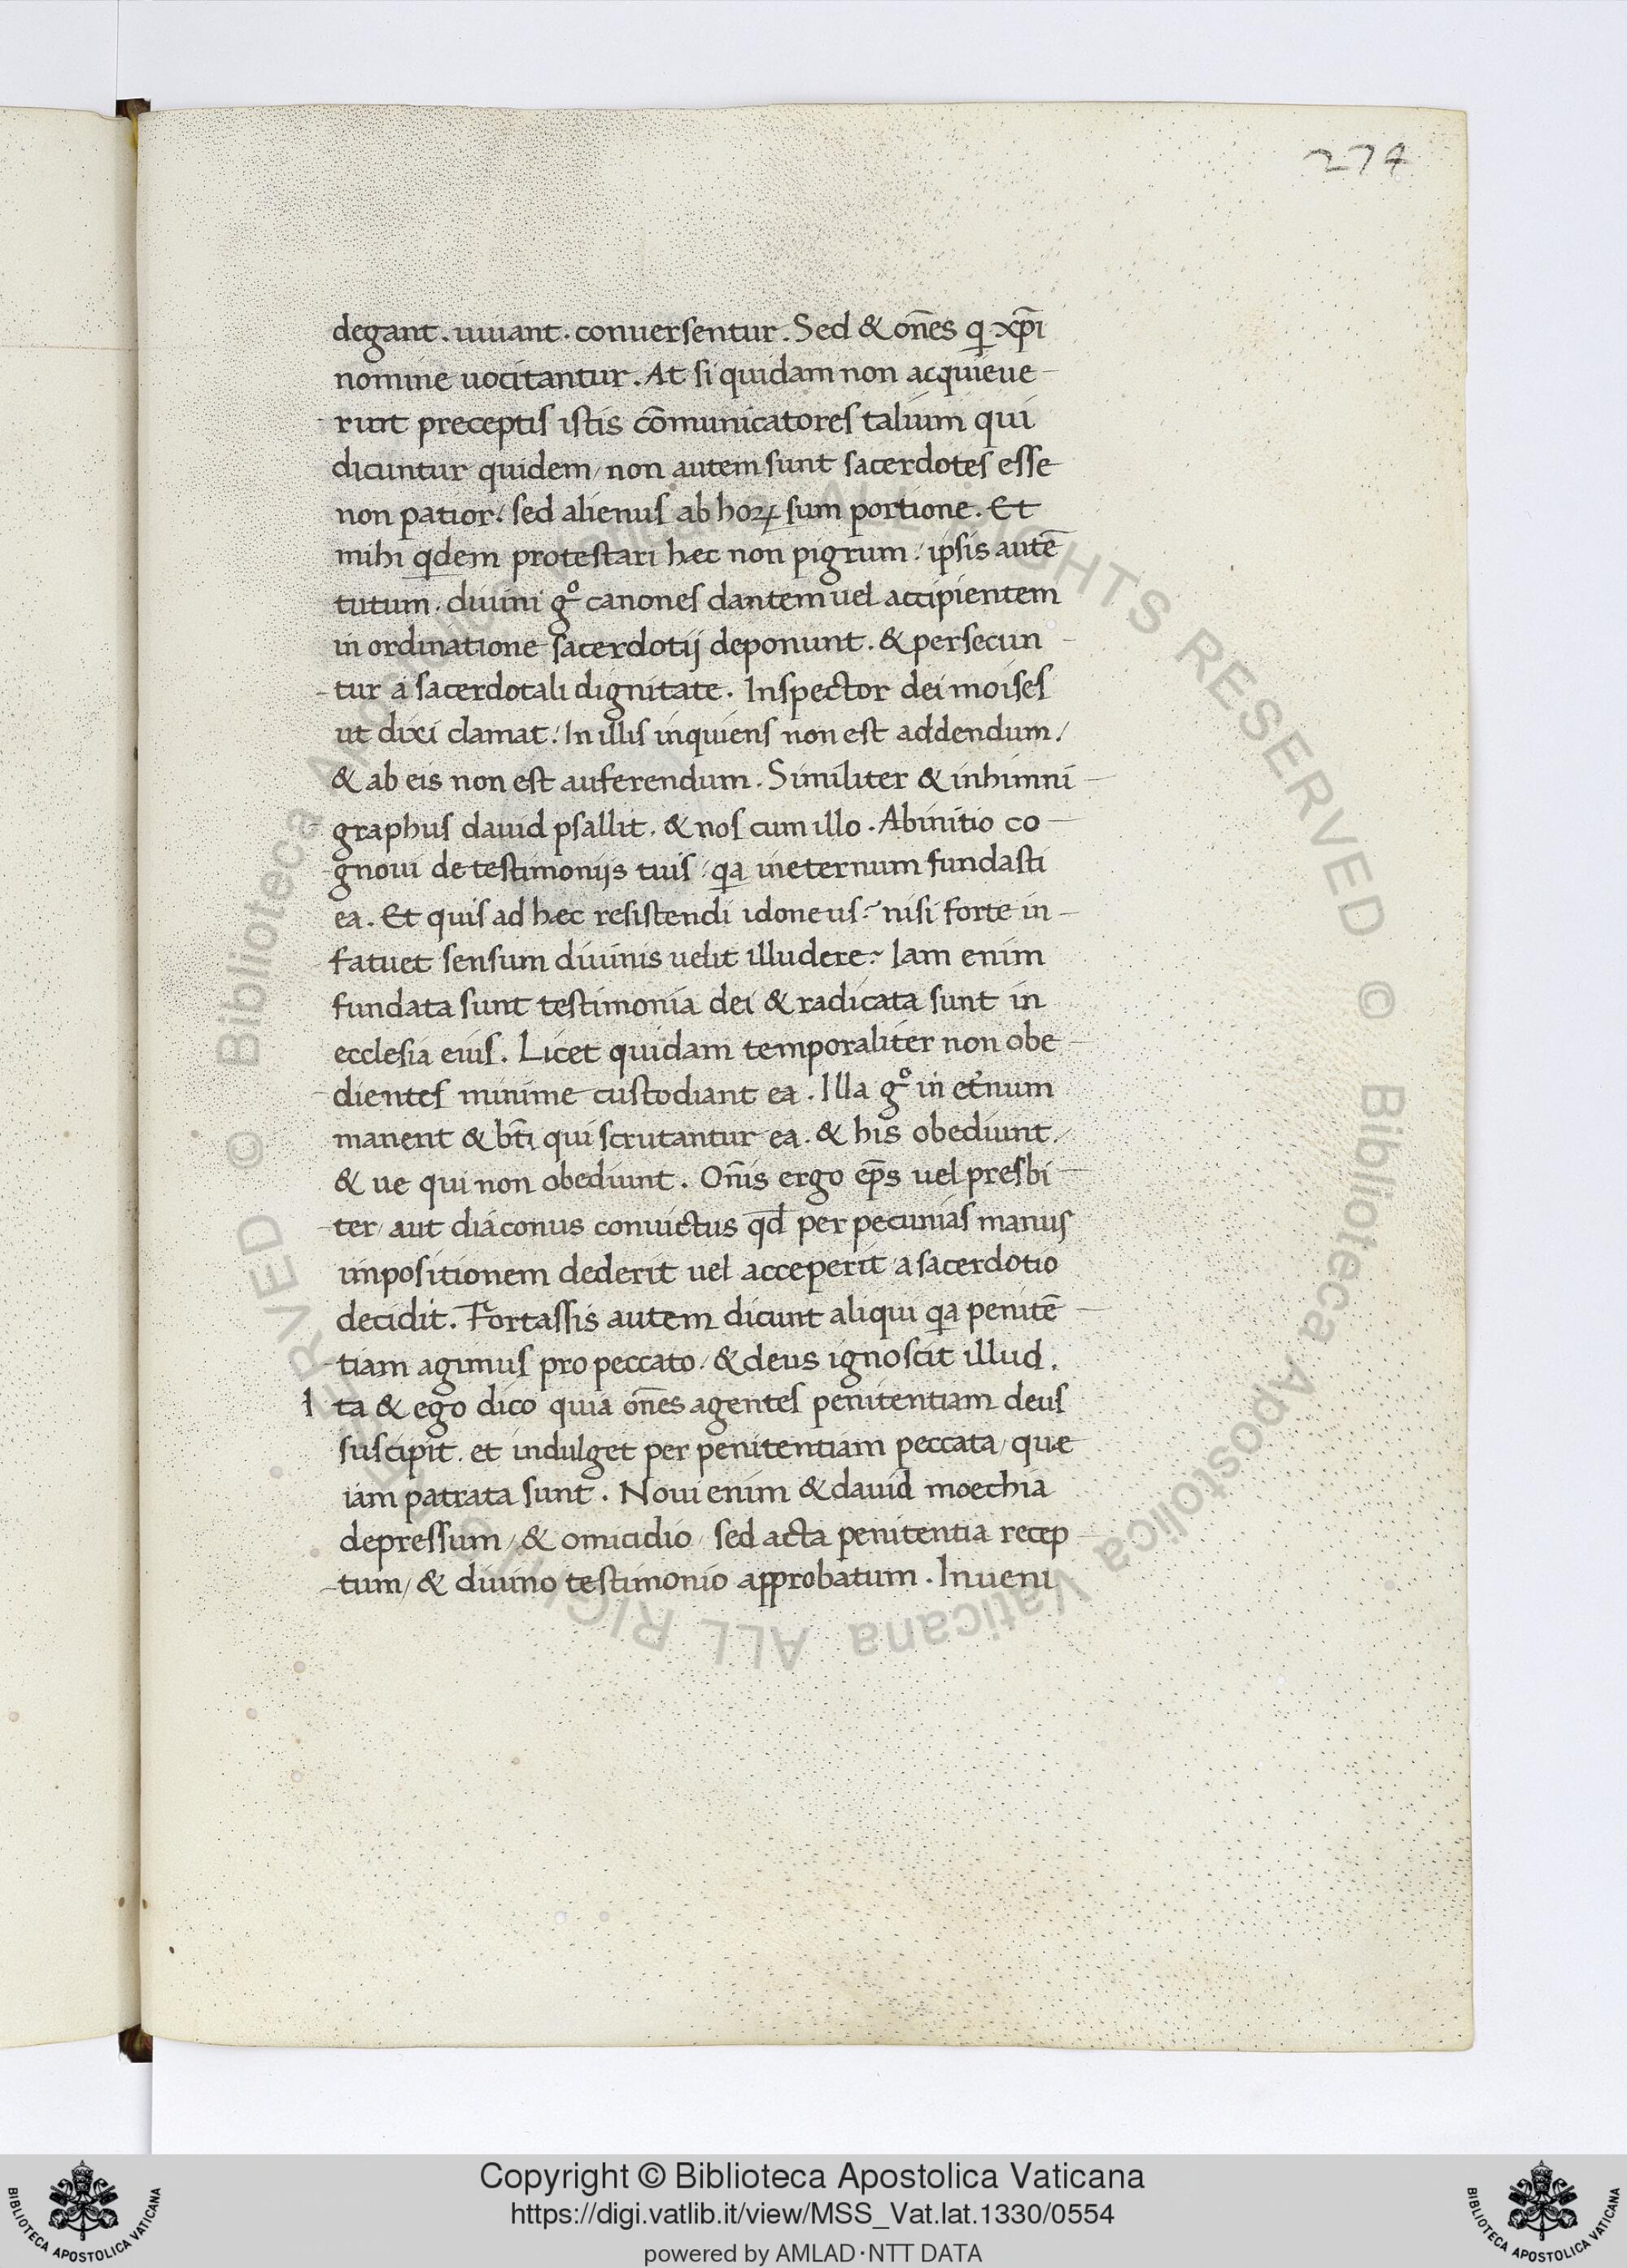 274
degant. uiuant. conuersentur. Sed & om̄es q xp̄i
nomine uocitantur. At si quidam non acquieue-
-runt preceptis istis cōmunicatores talium qui
dicuntur quidem/ non autem sunt sacerdotes esse
non patior/ sed alienus ab hoꝝ sum portione. Et
mihi qdem protestari hec non pigrum/ ipsis autē
tutum. diuini gº canones dantem uel accipientem
in ordinatione sacerdotij deponunt. & persecun-
-tur a sacerdotali dignitate. Inspector dei moises
ut dixi clamat/ In illis inquiens non est addendum/
& ab eis non est auferendum. Similiter & inhimni-
graphus dauid psallit. & nos cum illo. Abinitio co-
-gnoui de testimonijs tuis/ qa ineternum fundasti
ea. Et quis ad hæc resistendi idoneus? nisi forte in-
-fatuet sensum diuinis uelit illudere? Iam enim
fundata sunt testimonia dei & radicata sunt in
ecclesia eius. Licet quidam temporaliter non obe-
-dientes minime custodiant ea. Illa gº in et̉num
manent & bt̄i qui scrutantur ea. & his obediunt/
& ue qui non obediunt. Om̄is ergo ep̄s uel presbi-
-ter/ aut diaconus conuictus qd̄ per pecunias manus
impositionem dederit uel acceperit a sacerdotio
decidit. Fortassis autem dicunt aliqui qa penitē-
-tiam agimus pro peccato/ & deus ignoscit illud.
I ta & ego dico quia om̄es agentes penitentiam deus
suscipit. et indulget per penitentiam peccata/ quæ
iam patrata sunt. Noui enim & dauid moechia
depressum/ & omicidio/ sed acta penitentia recep-
-tum/ & diuino testimonio approbatum. Inueni
© Biblioteca Apostolica Vaticana ALL RIGHTS RESERVED © Biblioteca Apostolica Vaticana ALL RIGHTS RESERVED
Copyright © Biblioteca Apostolica Vaticana
https://digi.vatlib.it/view/MSS_Vat.lat.1330/0554
powered by AMLAD·NTT DATA
BIBLIOTECA APOSTOLICA VATICANA
BIBLIOTECA APOSTOLICA VATICANA